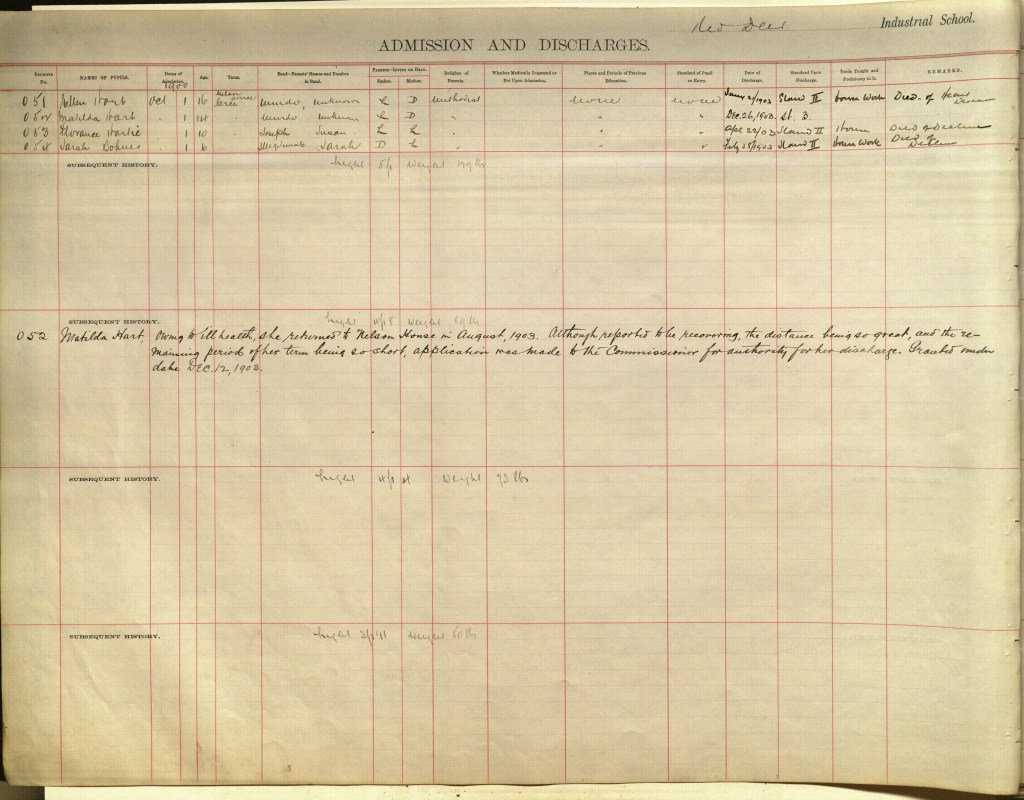 Red Deer Industrial School.
ADMISSION AND DISCHARGES.
Register No. NAMES OF PUPILS. Date of Admission. Age. Tribe. Band—Parents' Names and Number in Band. Parents—Living or Dead. Father. Mother. Religion of Parents. Whether Medically Inspected or Not Upon Admission. Places and Periods of Previous Education. Standard of Pupil on Entry. Date of Discharge. Standard Upon Discharge. Trade Taught and Proficiency in it. REMARKS.
1900
051 Ellen Hart Oct 1 16 Nelson House Cree Murdo, unknown L D Methodist none none June 2/1903 Stand II House Work Died. of Heart Disease
052 Matilda Hart " 1 14 Murdo unknown L D " " " Dec. 26, 1903. St. 3.
053 Florance 1 10 Joseph Susan L L " " " Apl 22/03 Stand II House Died of Decline
054 Sarah 1 6 Illegitimate Sarah D L " " " July 28/1903 Stand II House Work Died of
SUBSEQUENT HISTORY. height 5/1 weight lbs
SUBSEQUENT HISTORY. height 4/18 weight 89 lbs
052 Matilda Hart, Owing to Ill health, she returned to Nelson House in August, 1903. Although, reported to be recovering, the distance being so great, and the re-
maining period of her term being so short, application was made to the Commissioner for authority for her discharge. Granted under
date DEC. 12, 1903.
SUBSEQUENT HISTORY. height 4/1 weight 72 lbs
SUBSEQUENT HISTORY. height 3/11 weight 50 lb